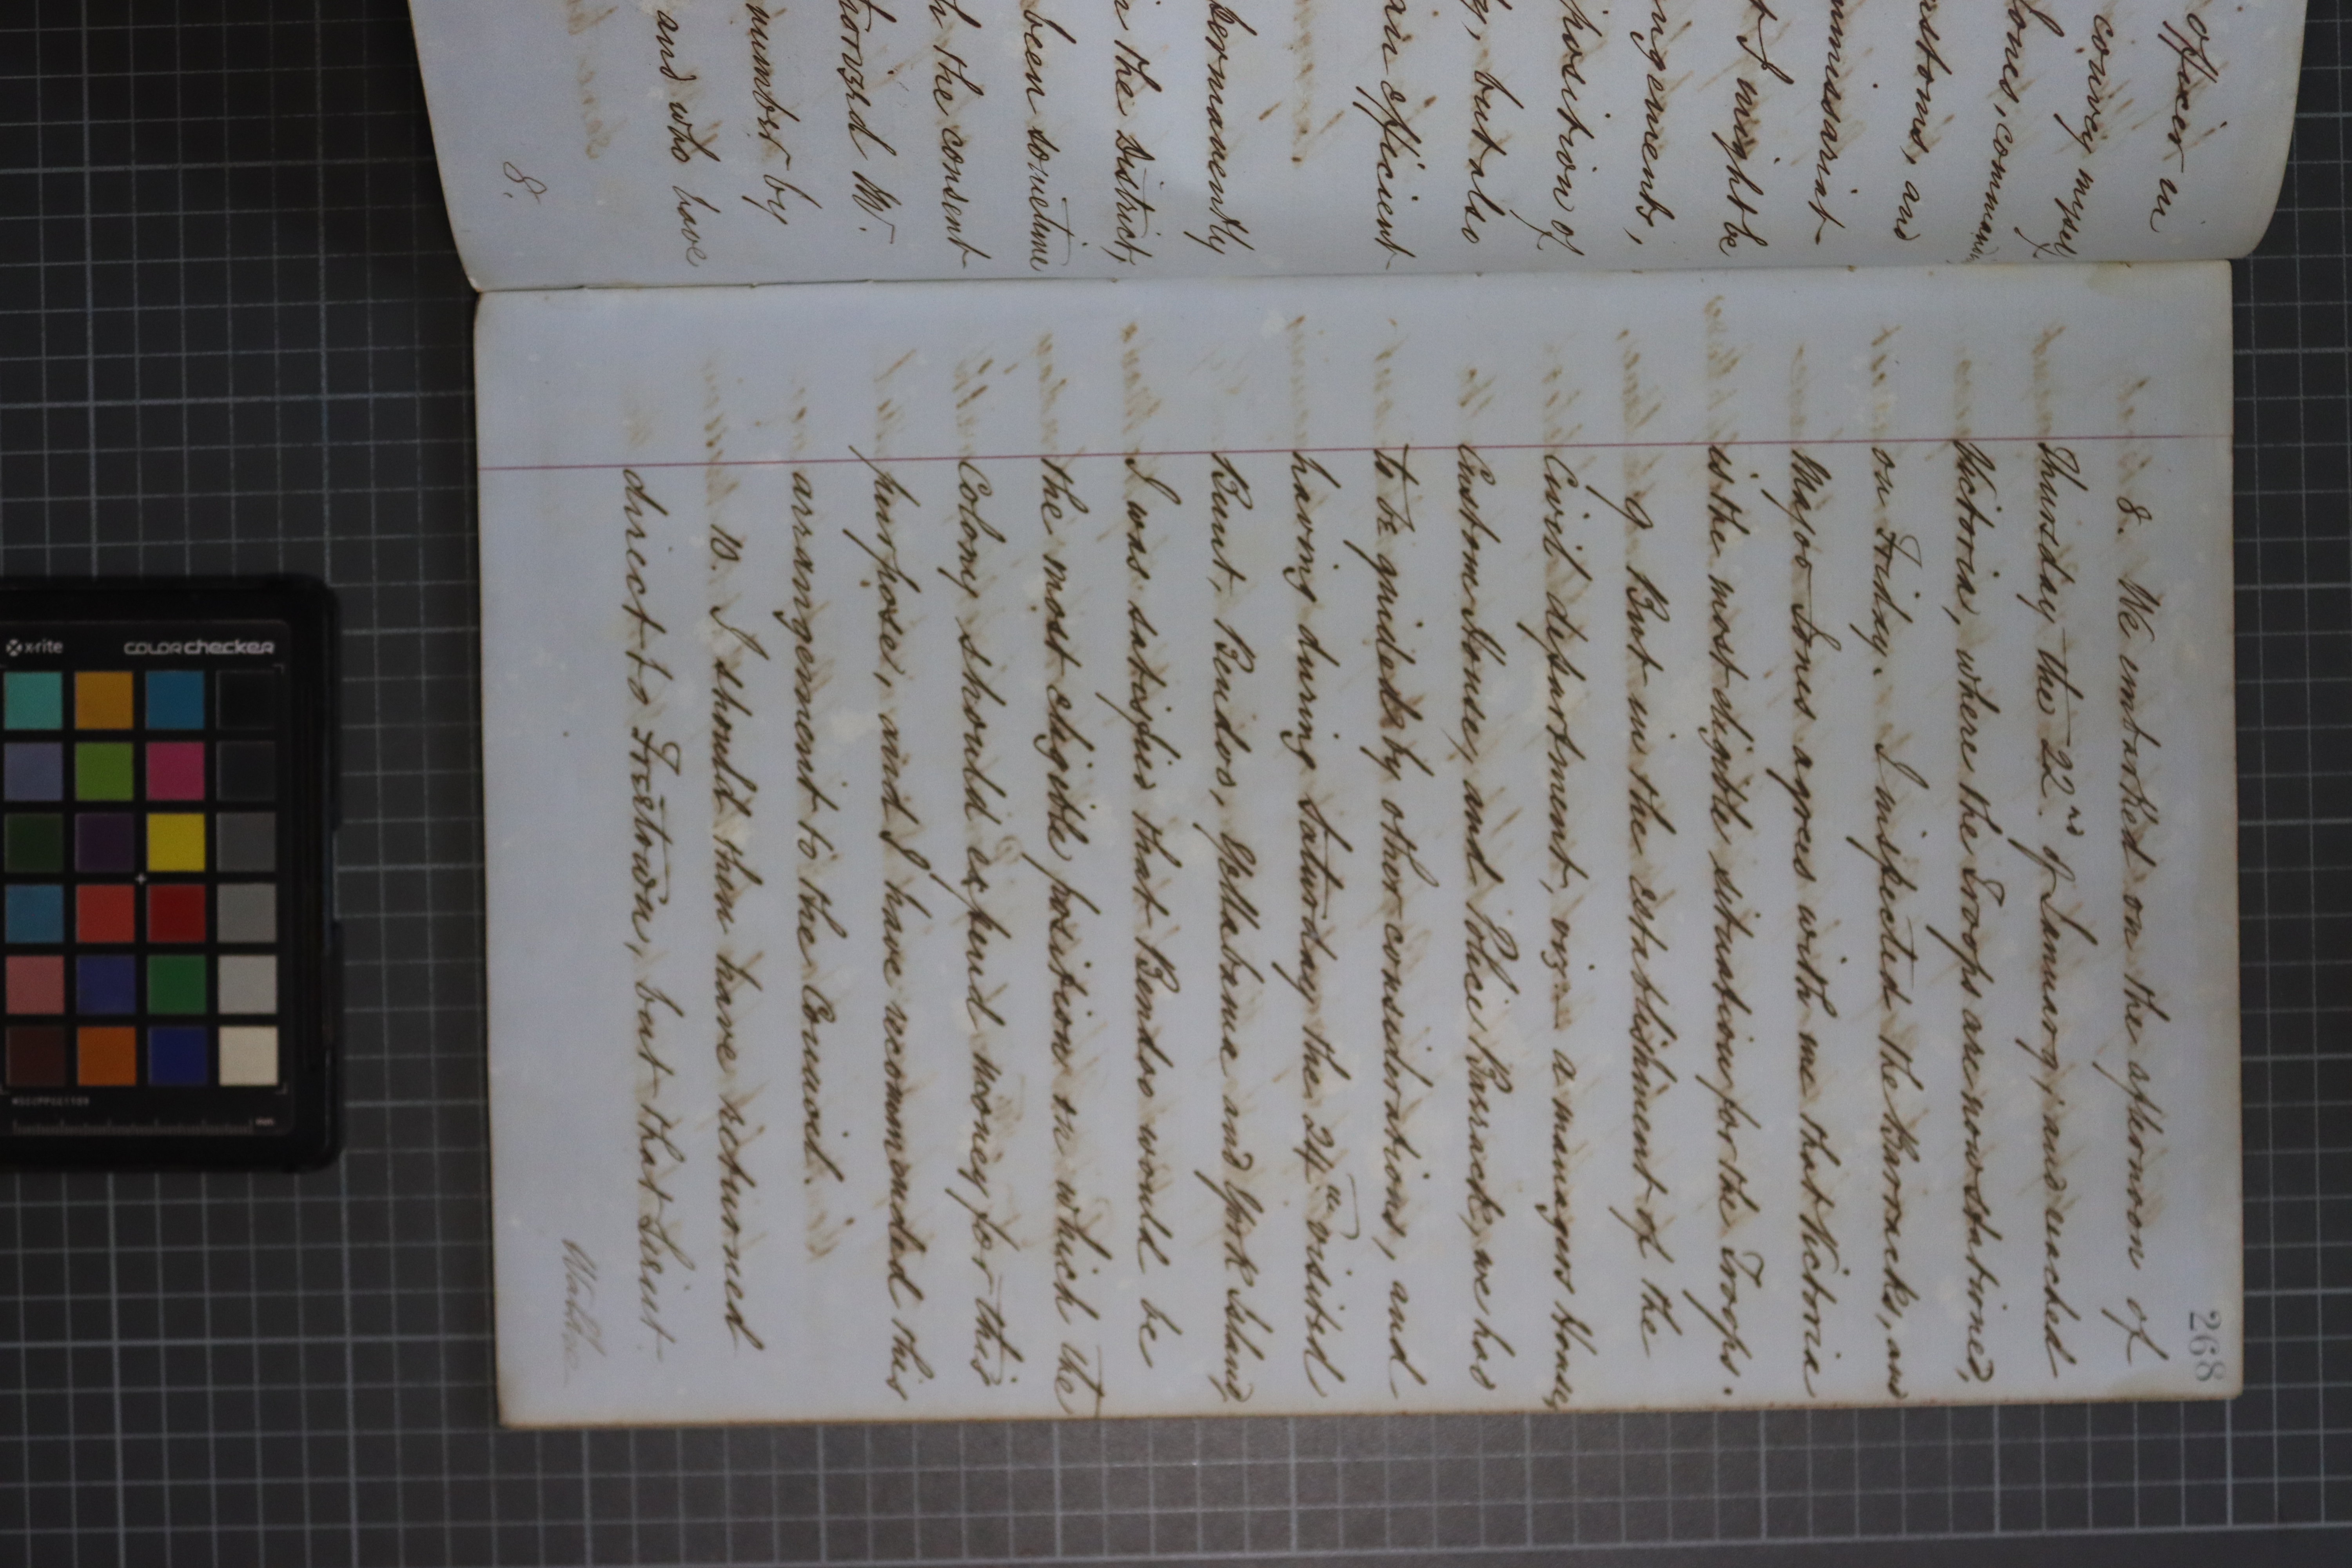 officer in
convey myself
Jones, commanding
ustoms, and
mmissariat
t I might be
ngements,
position of
but also
an efficient
permanently
in the district,
been sometime
h the consent
thorized W.
number by
and who have
8.
268
8. We embarked on the afternoon of
Thursday the 22nd of January, and reached
Victoria, where the Troops are now stationed,
on Friday. I inspected the Barracks, and
Major Jones agrees with me that Victoria
is the most eligible situation for the Troops.
9 But in the establishment of the
Civil department, viz. a managers House,
Custom House, and Police Barrack, we had
to be guided by other considerations, and
having during Saturday the 24th visited
Bunt, Bendoo, Yellabanae and York Island,
I was satisfied that Bendoo would be
the most eligible position on which the
Colony should expend money for this
purpose, and I have recommended this
arrangement to the Council.
10. I should then have returned
direct to Freetown, but that Lieut.
x-rite
colorchecker